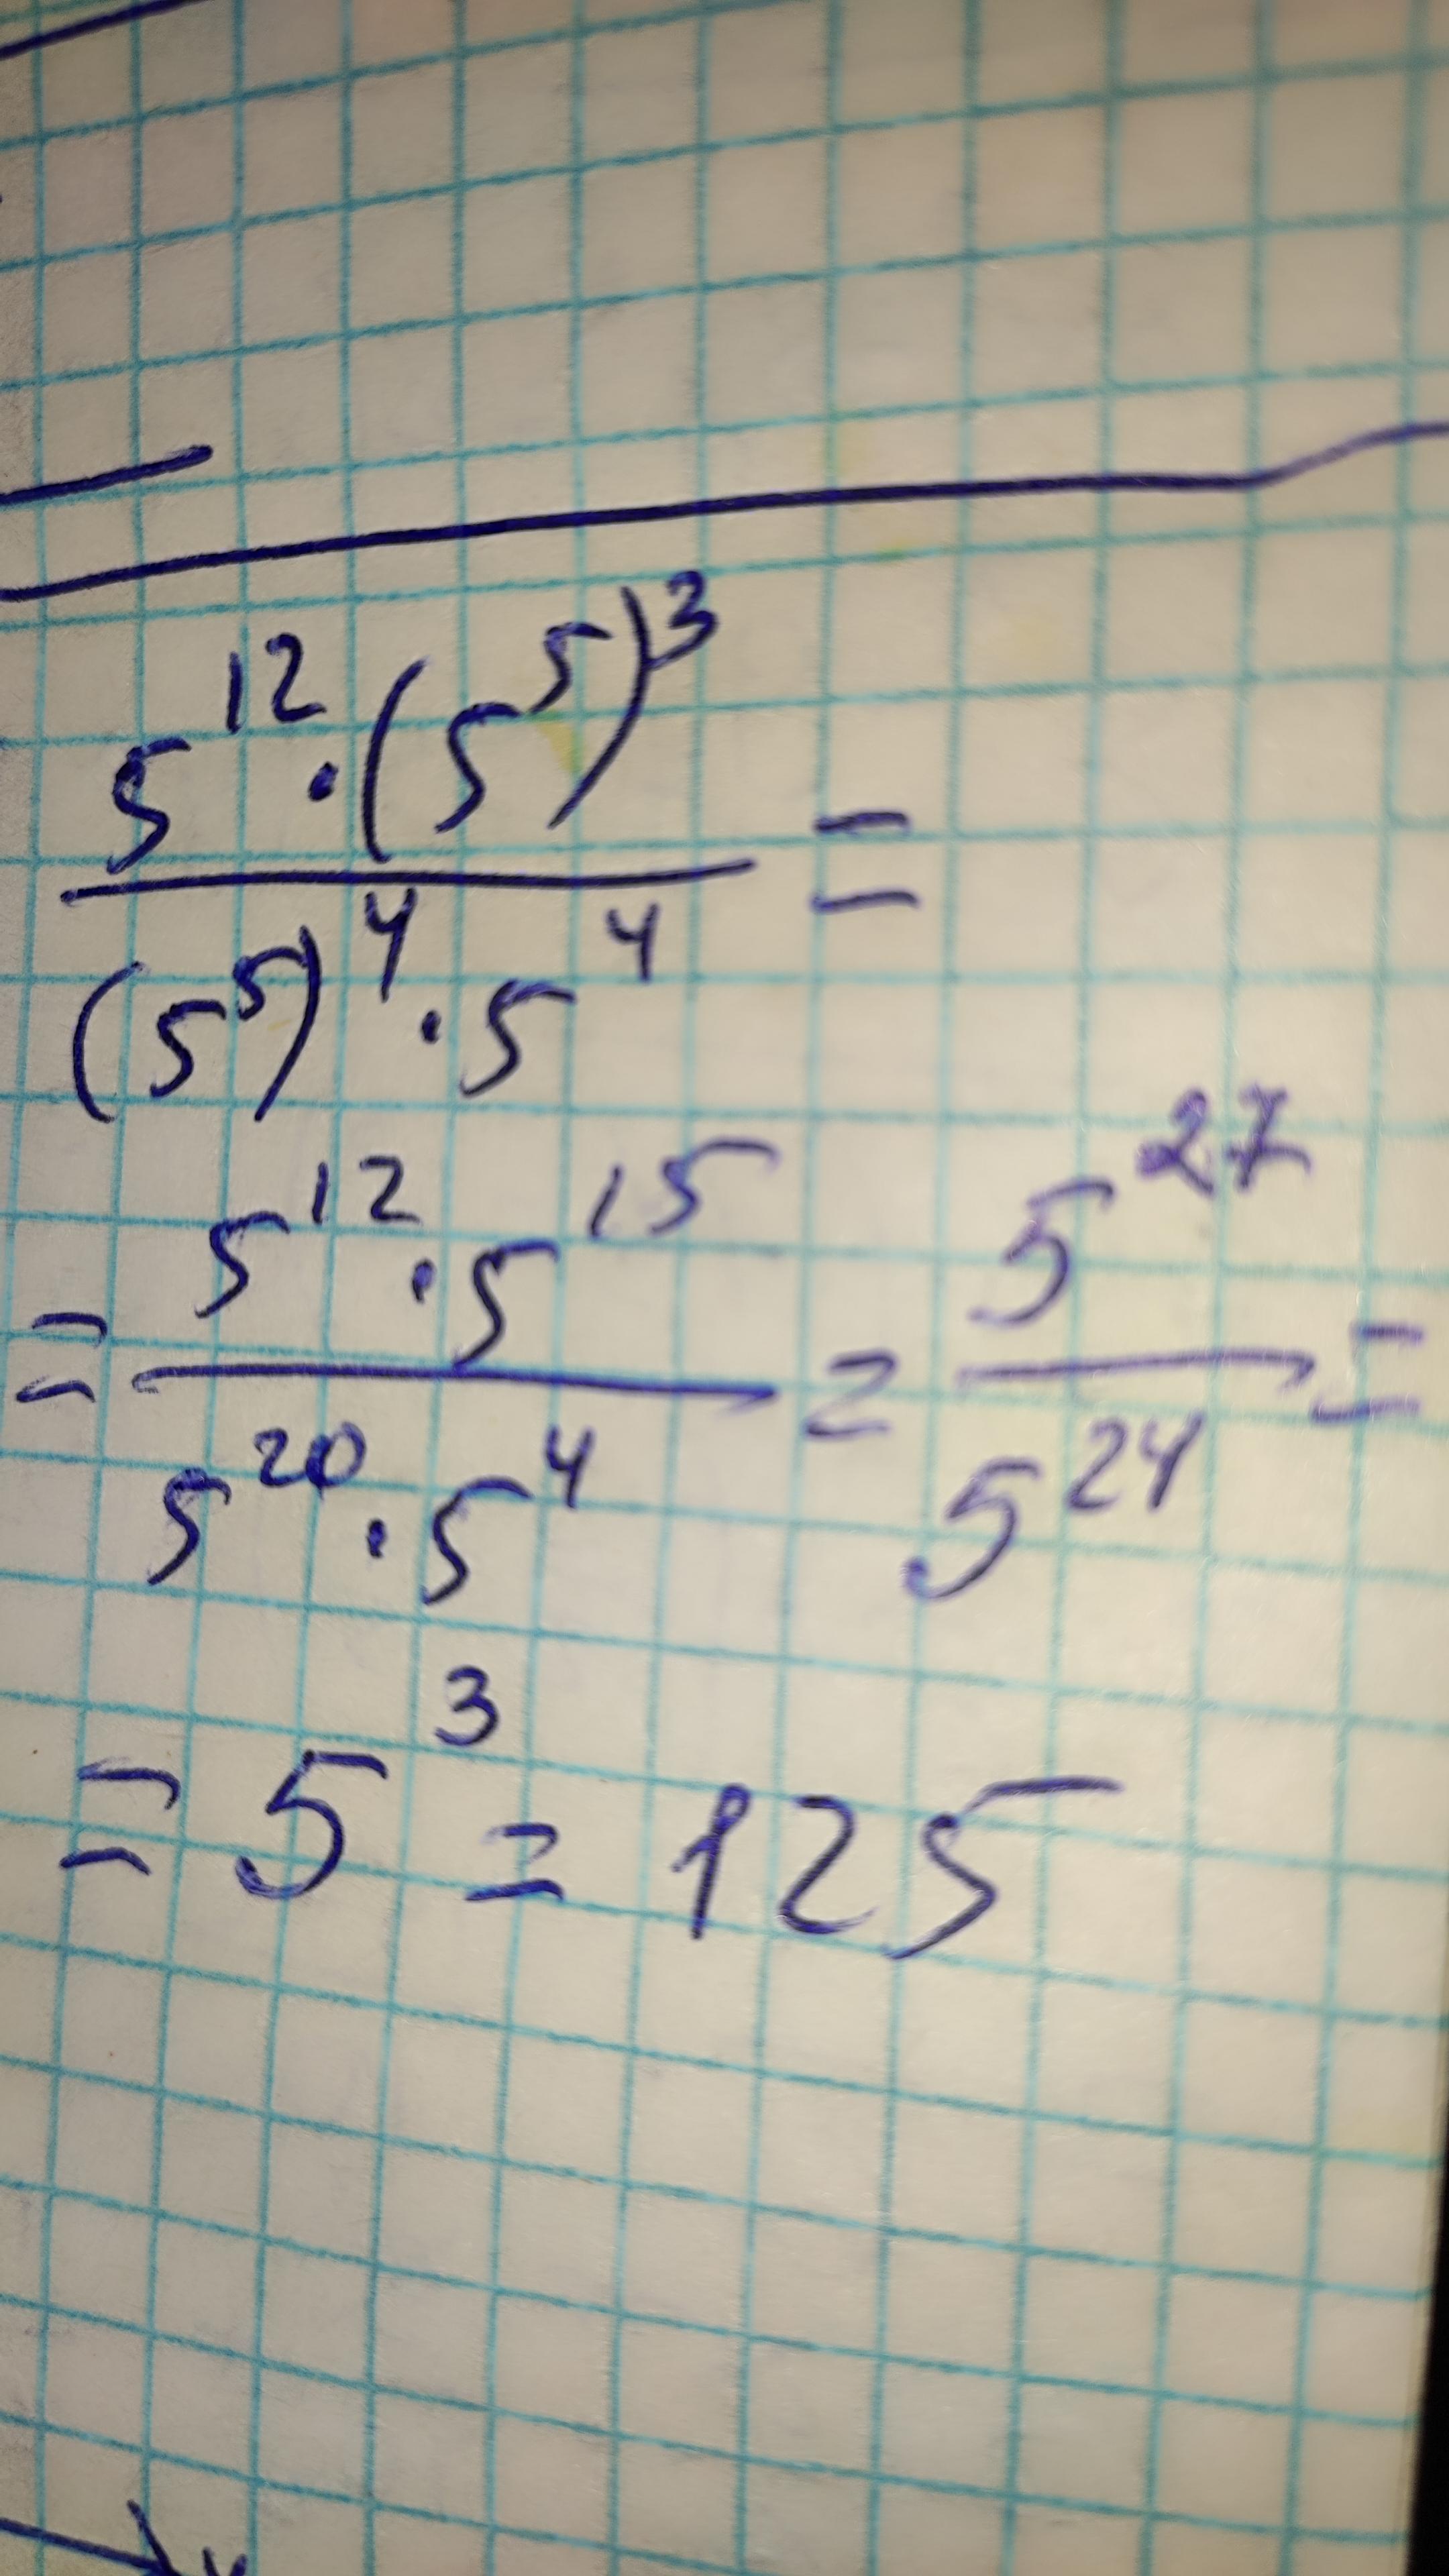 5¹² · (5⁵)³ / (5⁵)⁴ · 5⁴ =
= 5¹² · 5¹⁵ / 5²⁰ · 5⁴ = 5²⁷ / 5²⁴ =
= 5³ = 125